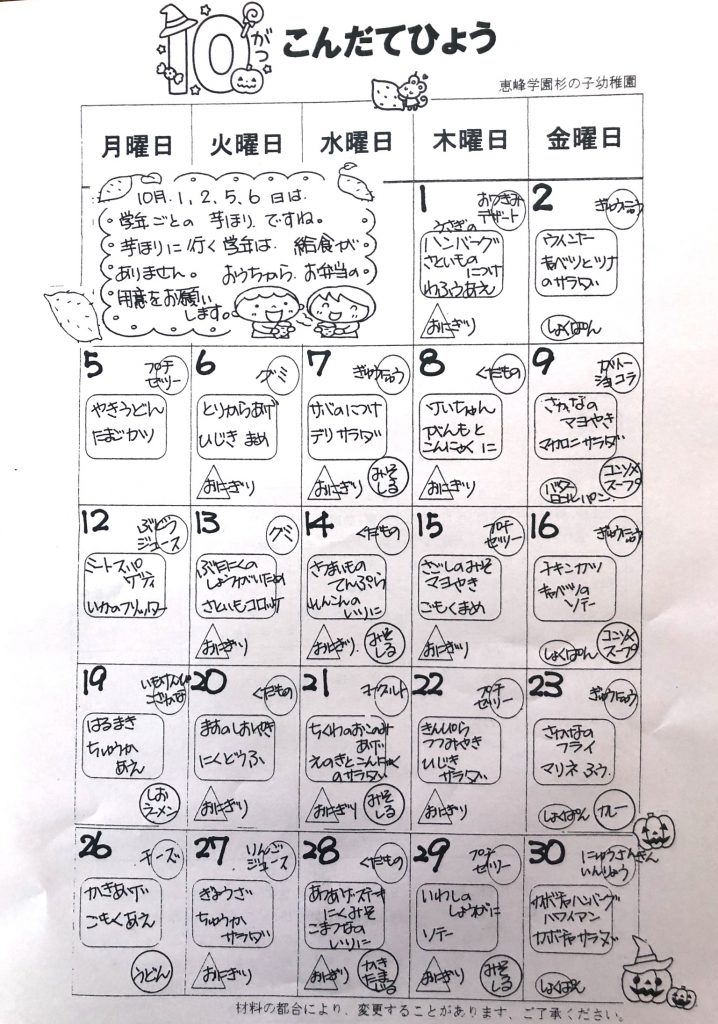 10がつ こんだてひょう
恵峰学園杉の子幼稚園
月曜日 火曜日 水曜日 木曜日 金曜日
10月.1,2,5,6 日は.
学年ごとの 芋ほり ですね。
芋ほりに行く学年は 給食が
ありません。 おうちから お弁当の
用意をお願い
します。
1
おつきみ
デザート
うさぎの
ハンバーグ
さといもの
につけ
わふうあえ
おにぎり
2
ぎゅうにゅう
ウインナー
キャベツとツナ
のサラダ
しょくぱん
5
プチ
ゼリー
やきうどん
たまごカツ
6
グミ
とりからあげ
ひじき まめ
おにぎり
7
ぎゅうにゅう
サバのにつけ
デリ サラダ
おにぎり
みそ
しる
8
くだもの
けいちゃん
こんにゃく に
おにぎり
9
ガトー
ショコラ
さかなの
マヨやき
マカロニ サラダ
バター
ロールパン
コンソメ
スープ
12
ぶどう
ジュース
ミートスパ
ゲティ
いかのフリッター
13
グミ
ぶたにくの
しょうがいため
さといもコロッケ
おにぎり
14
くだもの
さつまいもの
てんぷら
れんこんの
いりに
おにぎり
みそ
しる
15
プチ
ゼリー
さごしのみそ
マヨやき
ごもくまめ
おにぎり
16
ぎゅうにゅう
チキンカツ
キャベツの
ソテー
しょくぱん
コンソメ
スープ
19
はるまき
ちゅうか
あえ
しお
ラーメン
20
くだもの
さばのしおやき
にくどうふ
おにぎり
21
ヨーグルト
ちくわのおこのみ
あげ
えのきとこんにゃく
のサラダ
おにぎり
みそ
しる
22
プチ
ゼリー
きんぴら
つつみやき
ひじき
サラダ
おにぎり
23
ぎゅうにゅう
さかなの
フライ
マリネ ふう
しょくぱん
カレー
26
チーズ
かきあげ
ごもくあえ
うどん
27
りんご
ジュース
ぎょうざ
ちゅうか
サラダ
おにぎり
28
くだもの
あつあげステーキ
にくみそ
こまつなの
いりに
おにぎり
かき
たま
じる
29
プチ
ゼリー
いわしの
しょうがに
ソテー
おにぎり
みそ
しる
30
にゅうさんきん
いんりょう
カボチャハンバーグ
ハワイアン
カボチャサラダ
しょくぱん
材料の都合により、変更することがあります、ご了承ください。